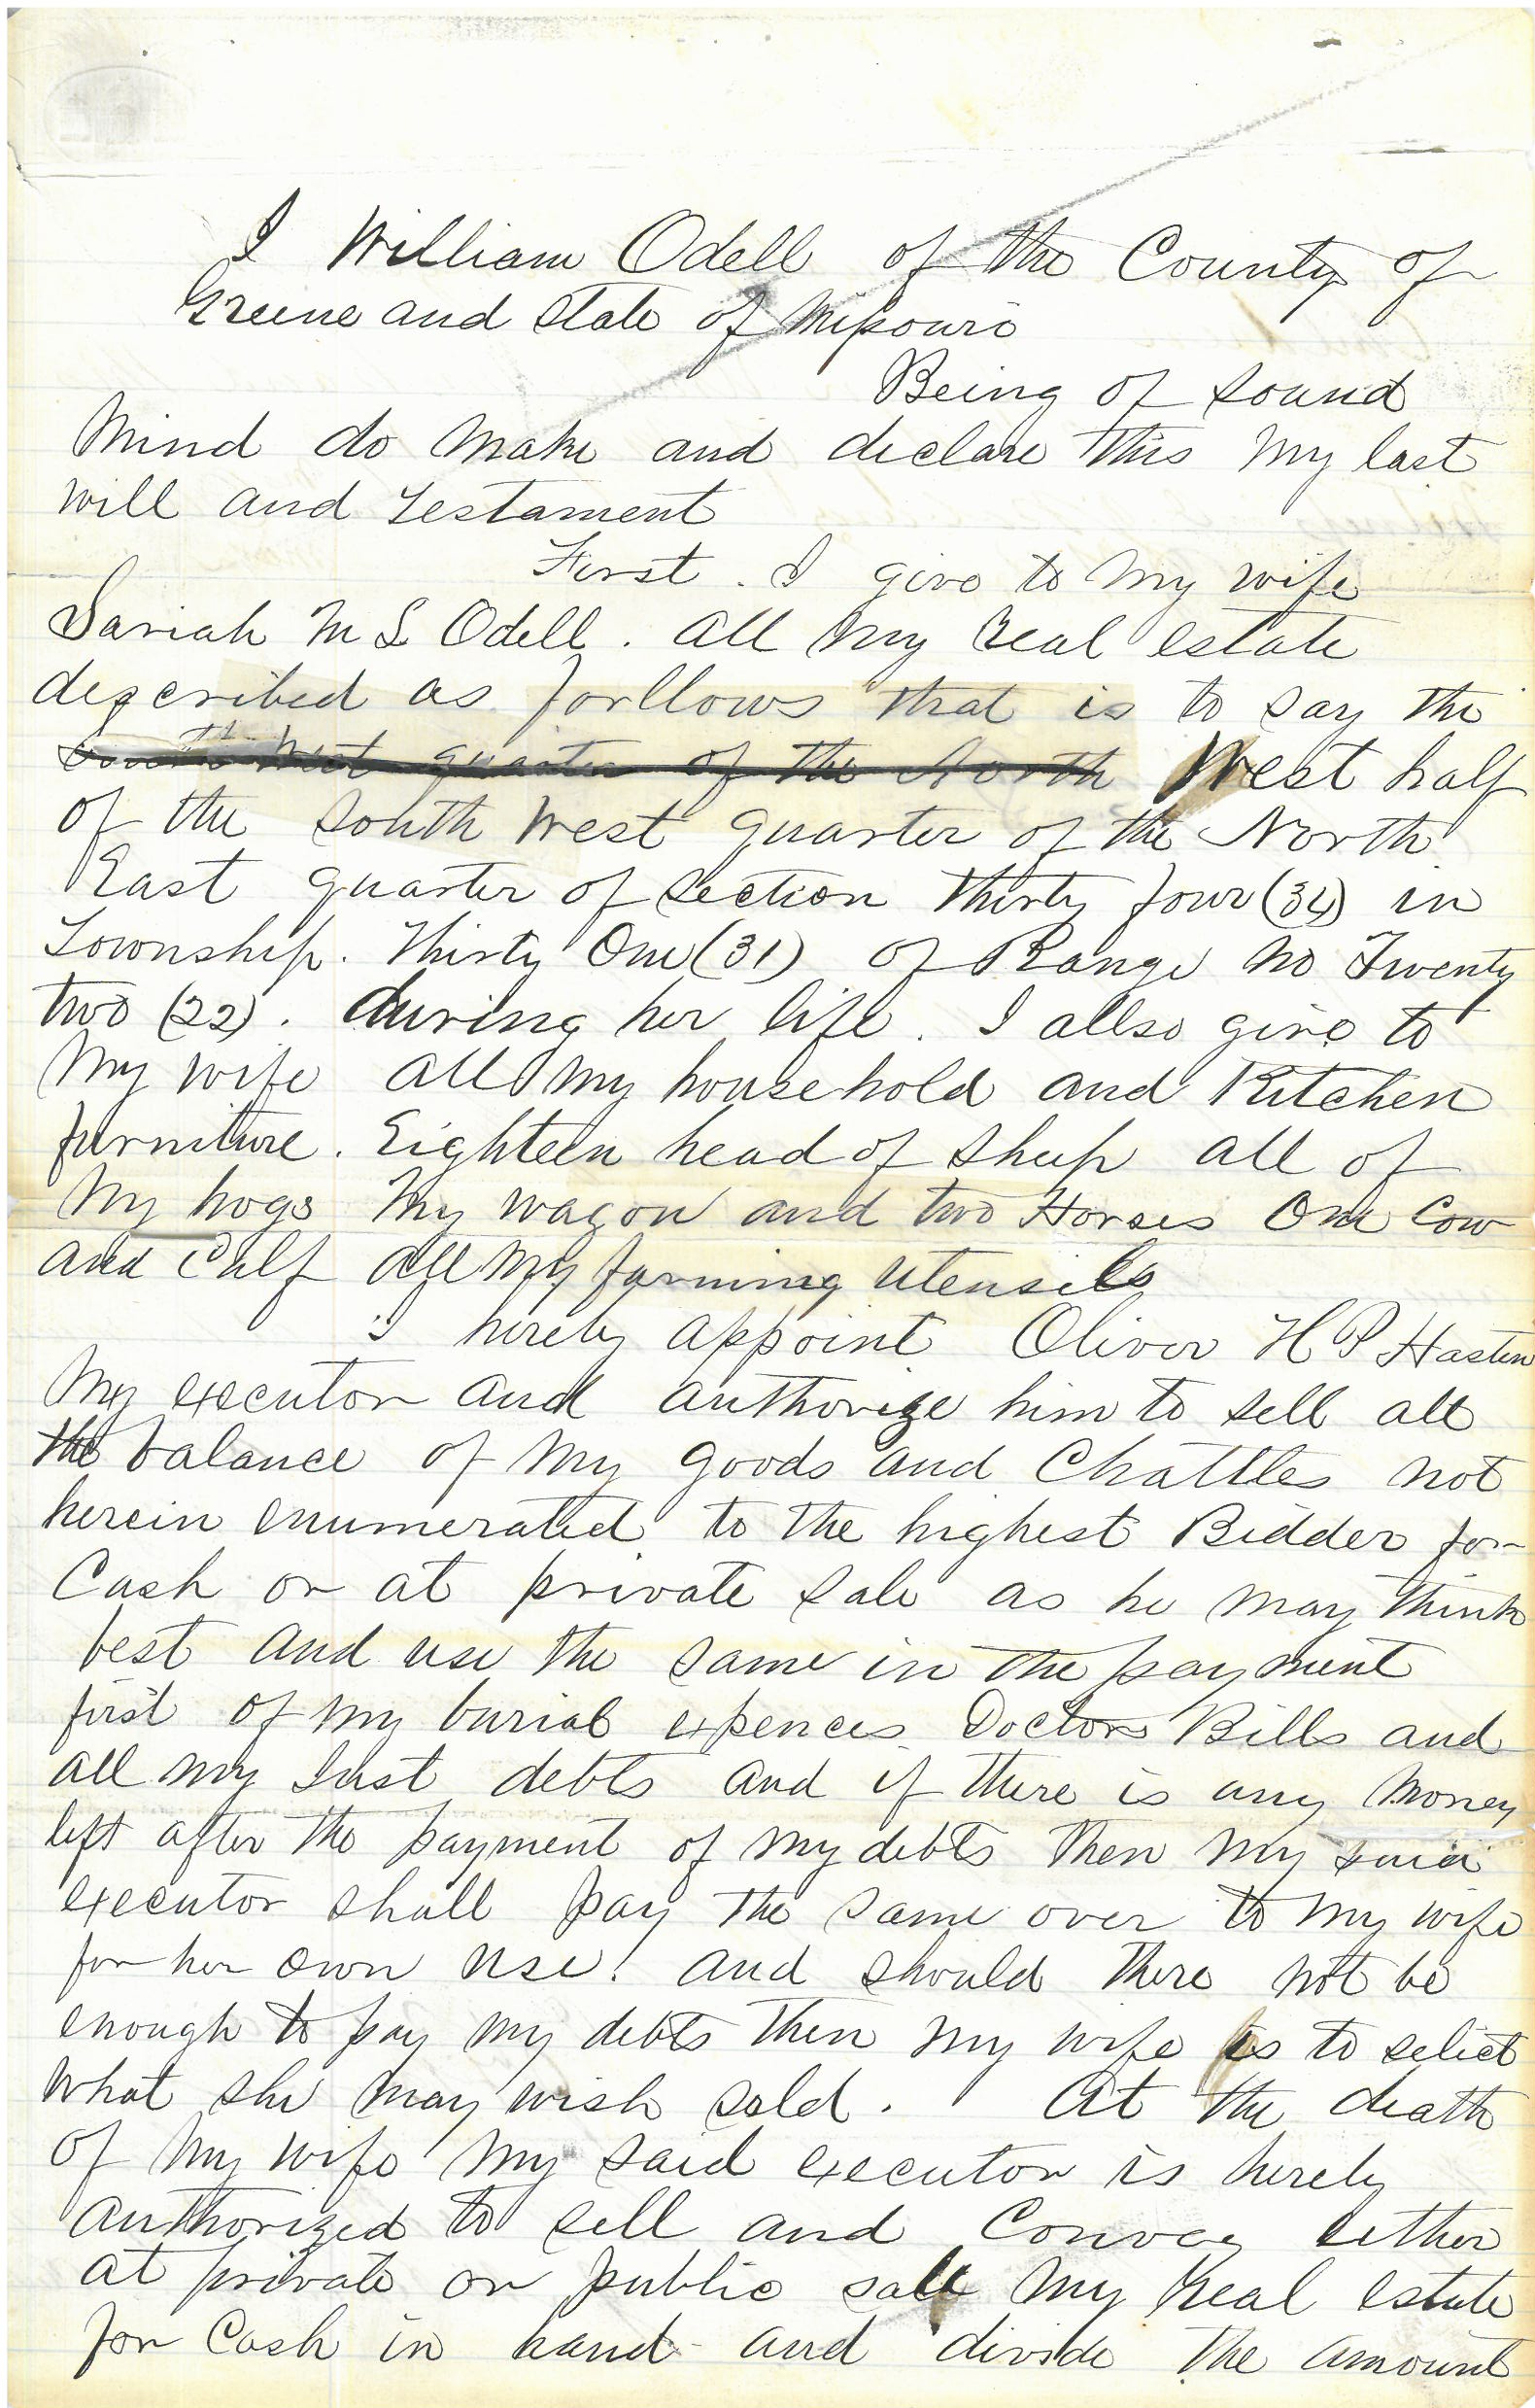 I William Odell of the County of
Greene and State of Missouri
Being of sound
Mind do make and declare this my last
will and Testament
First . I give to my wife
Sariah M S Odell . all my real estate
described as forllows that is to say the
South West quarter of the North West half
of the South West quarter of the North
East quarter of Section Thirty four (34) in
Township . Thirty One (31) of Range No Twenty
two (22) . during her life . I allso give to
My wife all my household and Kitchen
furniture . Eighteen head of sheep all of
My hogs My wagon and two Horses One Cow
and Calf all my farming utensils
I hereby appoint Oliver H P Hasten
My executor and authorize him to sell all
the balance of my goods and Chattles not
herein enumerated to the highest Bidder for
Cash or at private sale as he may think
best and use the same in the payment
first of my burial expences Doctors Bills and
all my Just debts and if there is any money
left after the payment of my debts then my said
executor shall pay the same over to my wife
for her own use . and should there not be
enough to pay my debts then my wife is to select
what she may wish sold . At the death
of my wife my said executor is hereby
authorized to sell and Convey either
at private or public sale my real estate
for Cash in hand and divide the amount